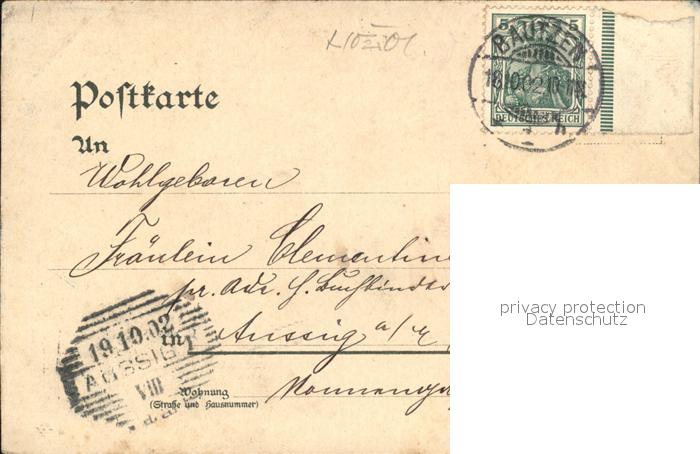 5 5
BAUTZEN
18.10.02.10-11
DEUTSCHES REICH
Postkarte
An
Wohlgeboren
Fräulein Clementine
pr. Adr. H. Buchbinder
in Aussig a/E
19.10.02
AUSSIG 1
VIII
Wohnung
(Straße und Hausnummer)
privacy protection
Datenschutz